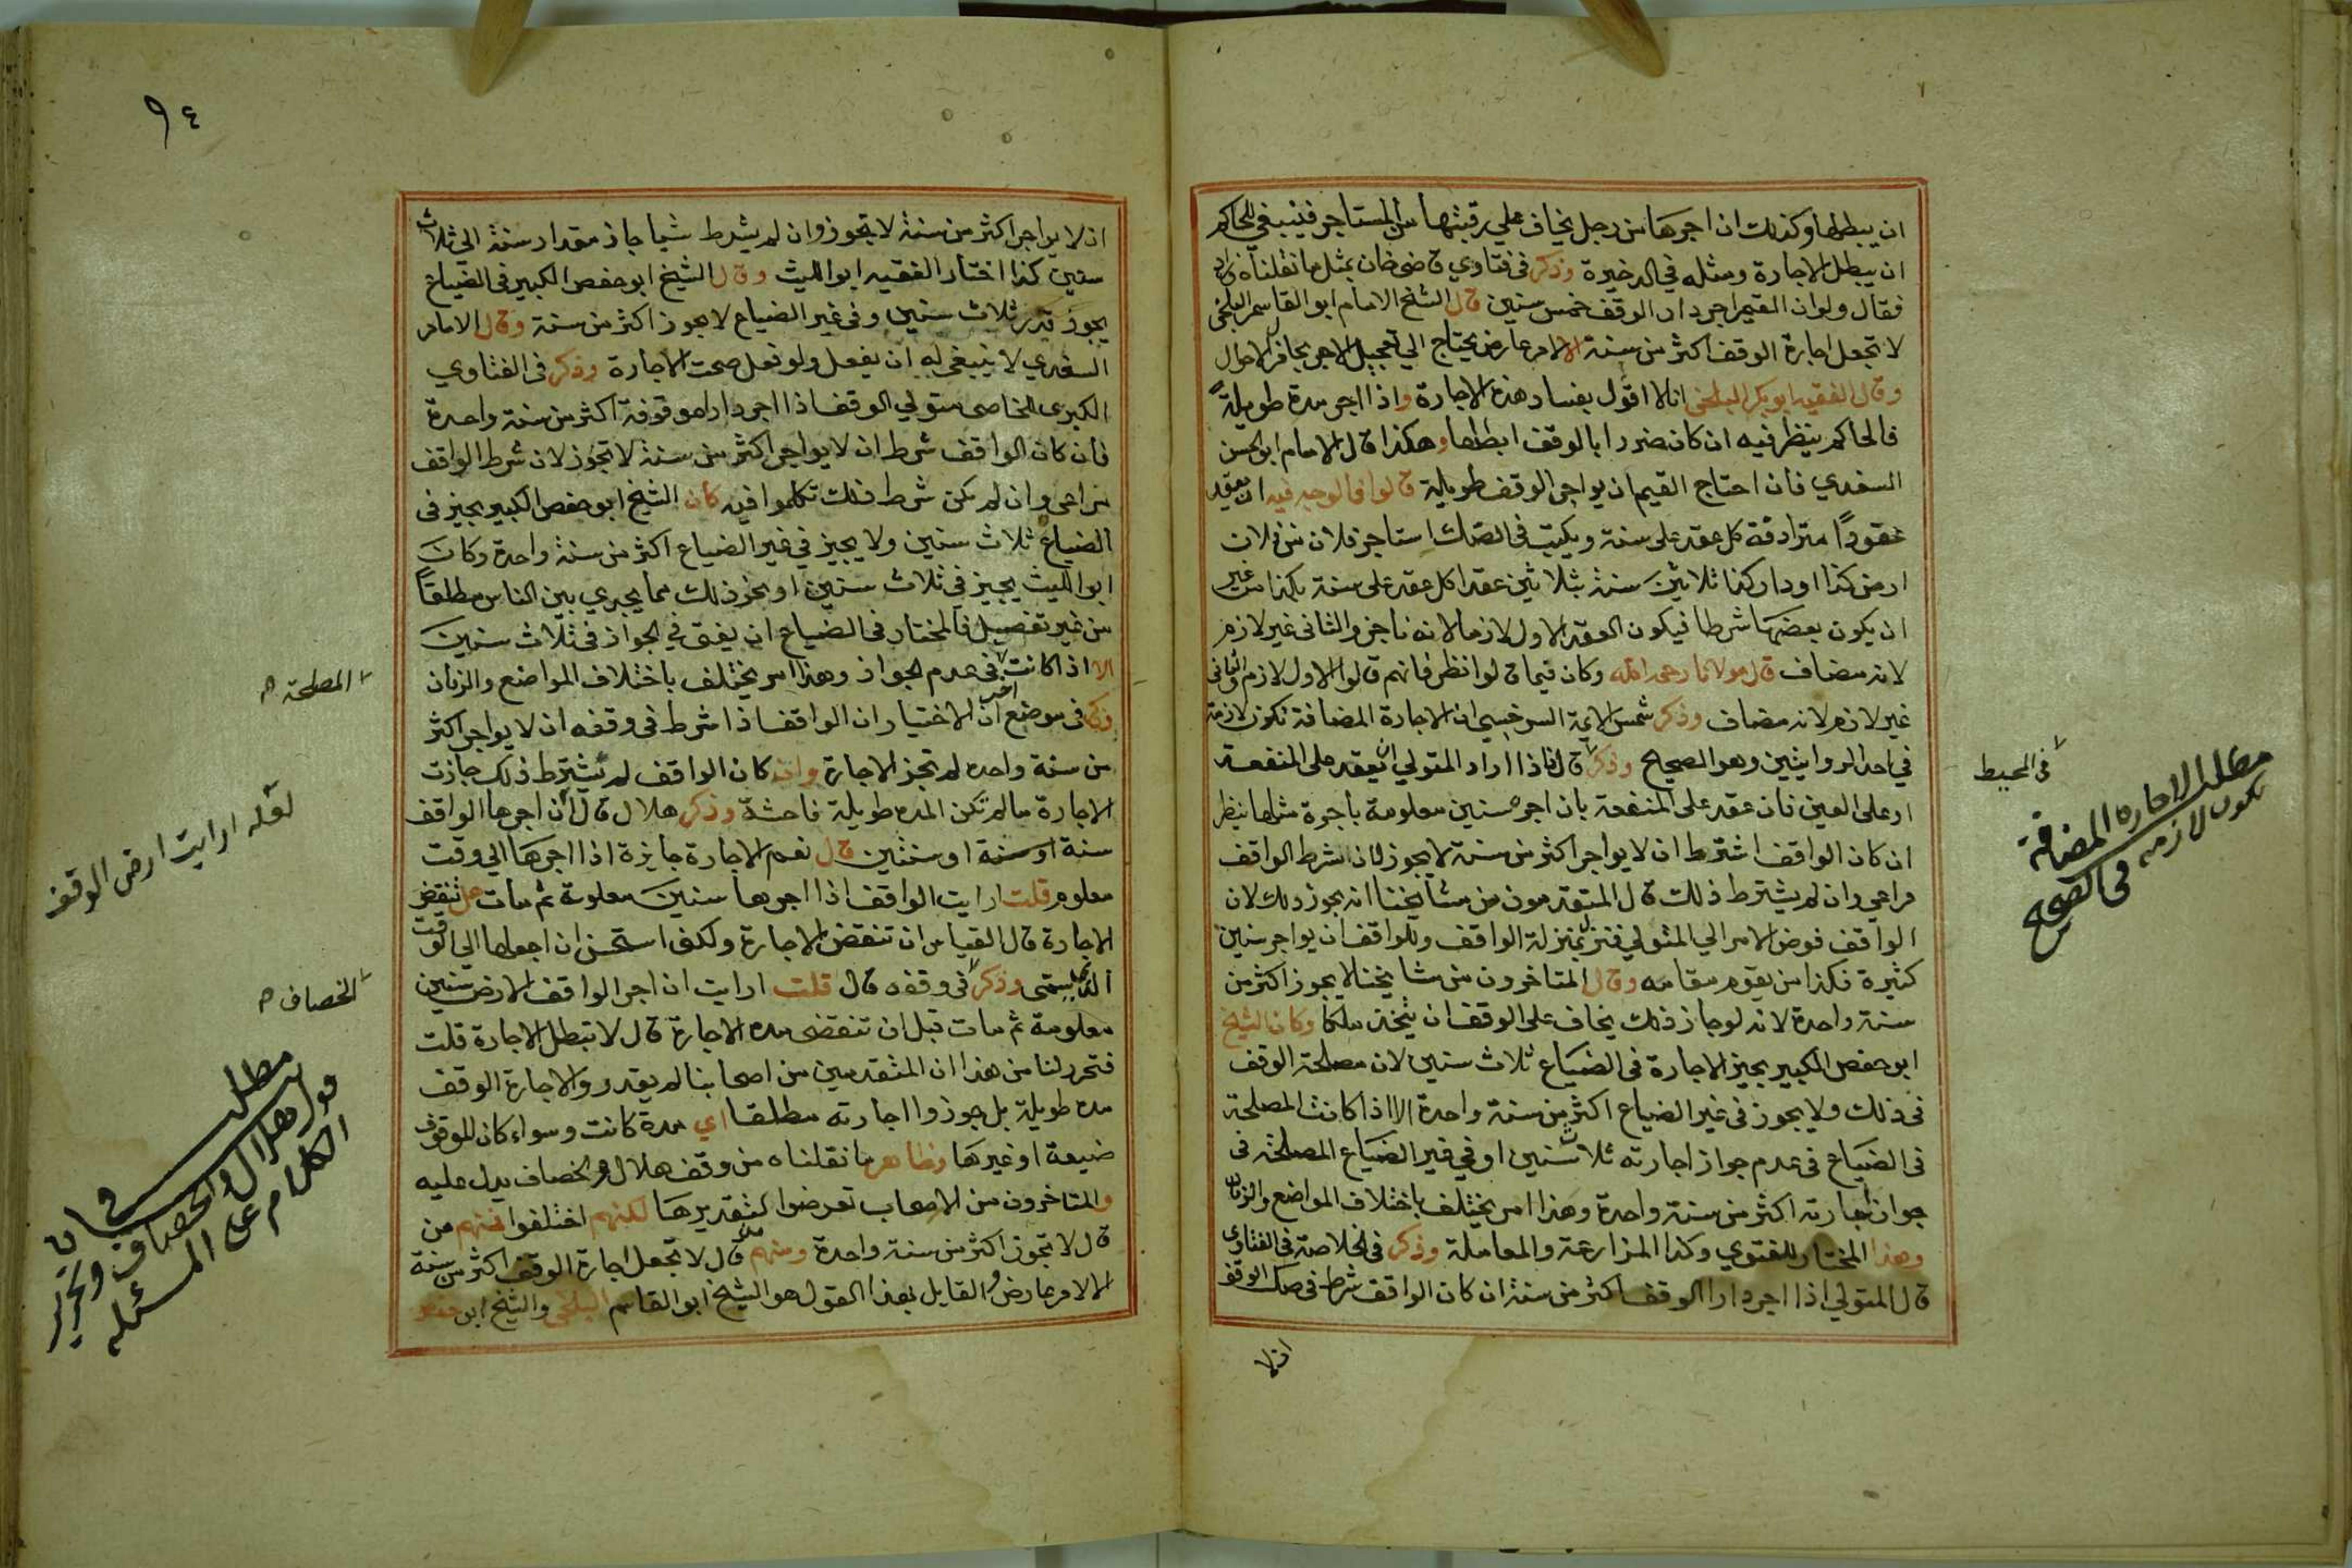 ان يبطلها وكذلك ان اجرها من رجل يخاف علي رقبتها من المستاجر فينبغي للحاكم
ان يبطل الاجارة ومثله في الذخيرة وذكر في فتاوي قاضي خان بمثل ما نقلناه
فقال ولو ان القيم اجر دار الوقف خمس سنين قال الشيخ الامام ابو القاسم البلخي
لا تجعل اجارة الوقف اكثر من سنة الا لامر عارض يحتاج الي تعجيل الاجر بحال من الاحوال
وقال الفقيه ابو بكر البلخي انا لا اقول بفساد هذه الاجارة واذا اجر مدة طويلة
فالحاكم ينظر فيه ان كان ضررا بالوقف ابطلها وهكذا قال الامام ابو الحسن
السغدي فان احتاج القيم ان يواجر الوقف طويلة قالوا فالوجه فيه ان يعقد
عقودًا مترادفة كل عقد على سنة ويكتب في الصك استاجر فلان من فلان
ارض كذا او دار كذا ثلاثين سنة بثلاثين عقدا كل عقد على سنة بكذا من غير
ان يكون بعضها شرطا فيكون العقد الاول لازما لانه ناجز والثاني غير لازم
لانه مضاف قال مولانا رحمه الله وكان فيما قالوا نظر فانهم قالوا الاول لازم والثاني
غير لازم لانه مضاف وذكر شمس الايمة السرخسي ان الاجارة المضافة تكون لازمة
في احد الروايتين وهو الصحيح وذكر قال فاذا اراد المتولي ان يعقد على المنفعة
او على العين فان عقد على المنفعة بان اجره سنين معلومة باجرة مثلها ينظر
ان كان الواقف اشترط ان لا يواجر اكثر من سنة لا يجوز لان شرط الواقف
مراعي وان لم يشترط ذلك قال المتقدمون من مشايخنا انه يجوز ذلك لان
الواقف فوض الامر الي المتولي فنزل بمنزلة الواقف وللواقف ان يواجر سنين
كثيرة فكذا من يقوم مقامه وقال المتاخرون من مشايخنا لا يجوز اكثر من
سنة واحدة لانه لو جاز ذلك يخاف على الوقف ان يتخذ ملكا وكان الشيخ
ابو حفص الكبير يجيز الاجارة في الضياع ثلاث سنين لان مصلحة الوقف
في ذلك ولا يجوز في غير الضياع اكثر من سنة واحدة الا اذا كانت المصلحة
في الضياع في عدم جواز اجارته ثلاث سنين او في غير الضياع المصلحة في
جواز اجارته اكثر من سنة واحدة وهذا امر يختلف باختلاف المواضع والزمان
وهذا المختار للفتوي وكذا المزارعة والمعاملة وذكر في الخلاصة في الفتاوي
قال المتولي اذا اجر دارا الوقف اكثر من سنة ان كان الواقف شرط في صك الوقف
ان لا
في المحيط
مطلب الاجارة المضافة
تكون لازمة في الصحيح
٩٤
ان لا يواجر اكثر من سنة لا يجوز وان لم يشرط شيا جاز مقدار سنة الي ثلاث
سنين كذا اختار الفقيه ابو الليث وقال الشيخ ابو حفص الكبير في الضياع
يجوز قدر ثلاث سنين وفي غير الضياع لا يجوز اكثر من سنة وقال الامام
السغدي لا ينبغي له ان يفعل ولو فعل صحت الاجارة وذكر في الفتاوي
الكبرى للخاصي متولي الوقف اذا اجر دارا موقوفة اكثر من سنة واحدة
فان كان الواقف شرط ان لا يواجر اكثر من سنة لا تجوز لان شرط الواقف
يراعى وان لم يكن شرط ذلك تكلموا فيه كان الشيخ ابو حفص الكبير يجيز في
الضياع ثلاث سنين ولا يجيز في غير الضياع اكثر من سنة واحدة وكان
ابو الليث يجيز في ثلاث سنين او نحو ذلك مما يجري بين الناس مطلقًا
من غير تفصيل فالمختار في الضياع ان يفتى في الجواز في ثلاث سنين
الا اذا كانت في عدم الجواز وهذا امر يختلف باختلاف المواضع والزمان
ذكر في موضع اخر ان الاختيار ان الواقف اذا شرط في وقفه ان لا يواجر اكثر
من سنة واحده لم تجز الاجارة وان كان الواقف لم يشترط ذلك جازت
الاجارة ما لم تكن المده طويلة فاحشة وذكر هلال قال ان اجرها الواقف
سنة او سنة او سنتين قال نعم الاجارة جايزة اذا اجرها الي وقت
معلوم قلت ارايت الواقف اذا اجرها سنين معلومة ثم مات هل تنقض
الاجارة قال القياس ان تنقض الاجارة ولكن استحسن ان اجعلها الي الوقت
الذي سمى وذكر في وقفه قال قلت ارايت ان اجر الواقف الارض سنين
معلومة ثم مات قبل ان تنقضى مده الاجارة قال لا تبطل الاجارة قلت
فتحرر لنا من هذا ان المتقدمين من اصحابنا لم يقدروا لاجارة الوقف
مده طويلة بل جوزوا اجارته مطلقا اي مدة كانت وسواء كان الموقوف
ضيعة او غيرها وظاهر ما نقلناه من وقف هلال والخصاف يدل عليه
والمتاخرون من الاصحاب تعرضوا لتقديرها لكنهم اختلفوا فمنهم من
قال لا تجوز اكثر من سنة واحدة ومنهم من قال لا تجعل اجارة الوقف اكثر من سنة
الا لامر عارض والقايل بهذا القول هو الشيخ ابو القاسم البلخي والشيخ ابو حفص
المصلحة صح
لعله ارايت ارض الوقف
الخصاف صح
مطلب
في بيان
قول هلال والخصاف وتحرير
الكلام على المسئله